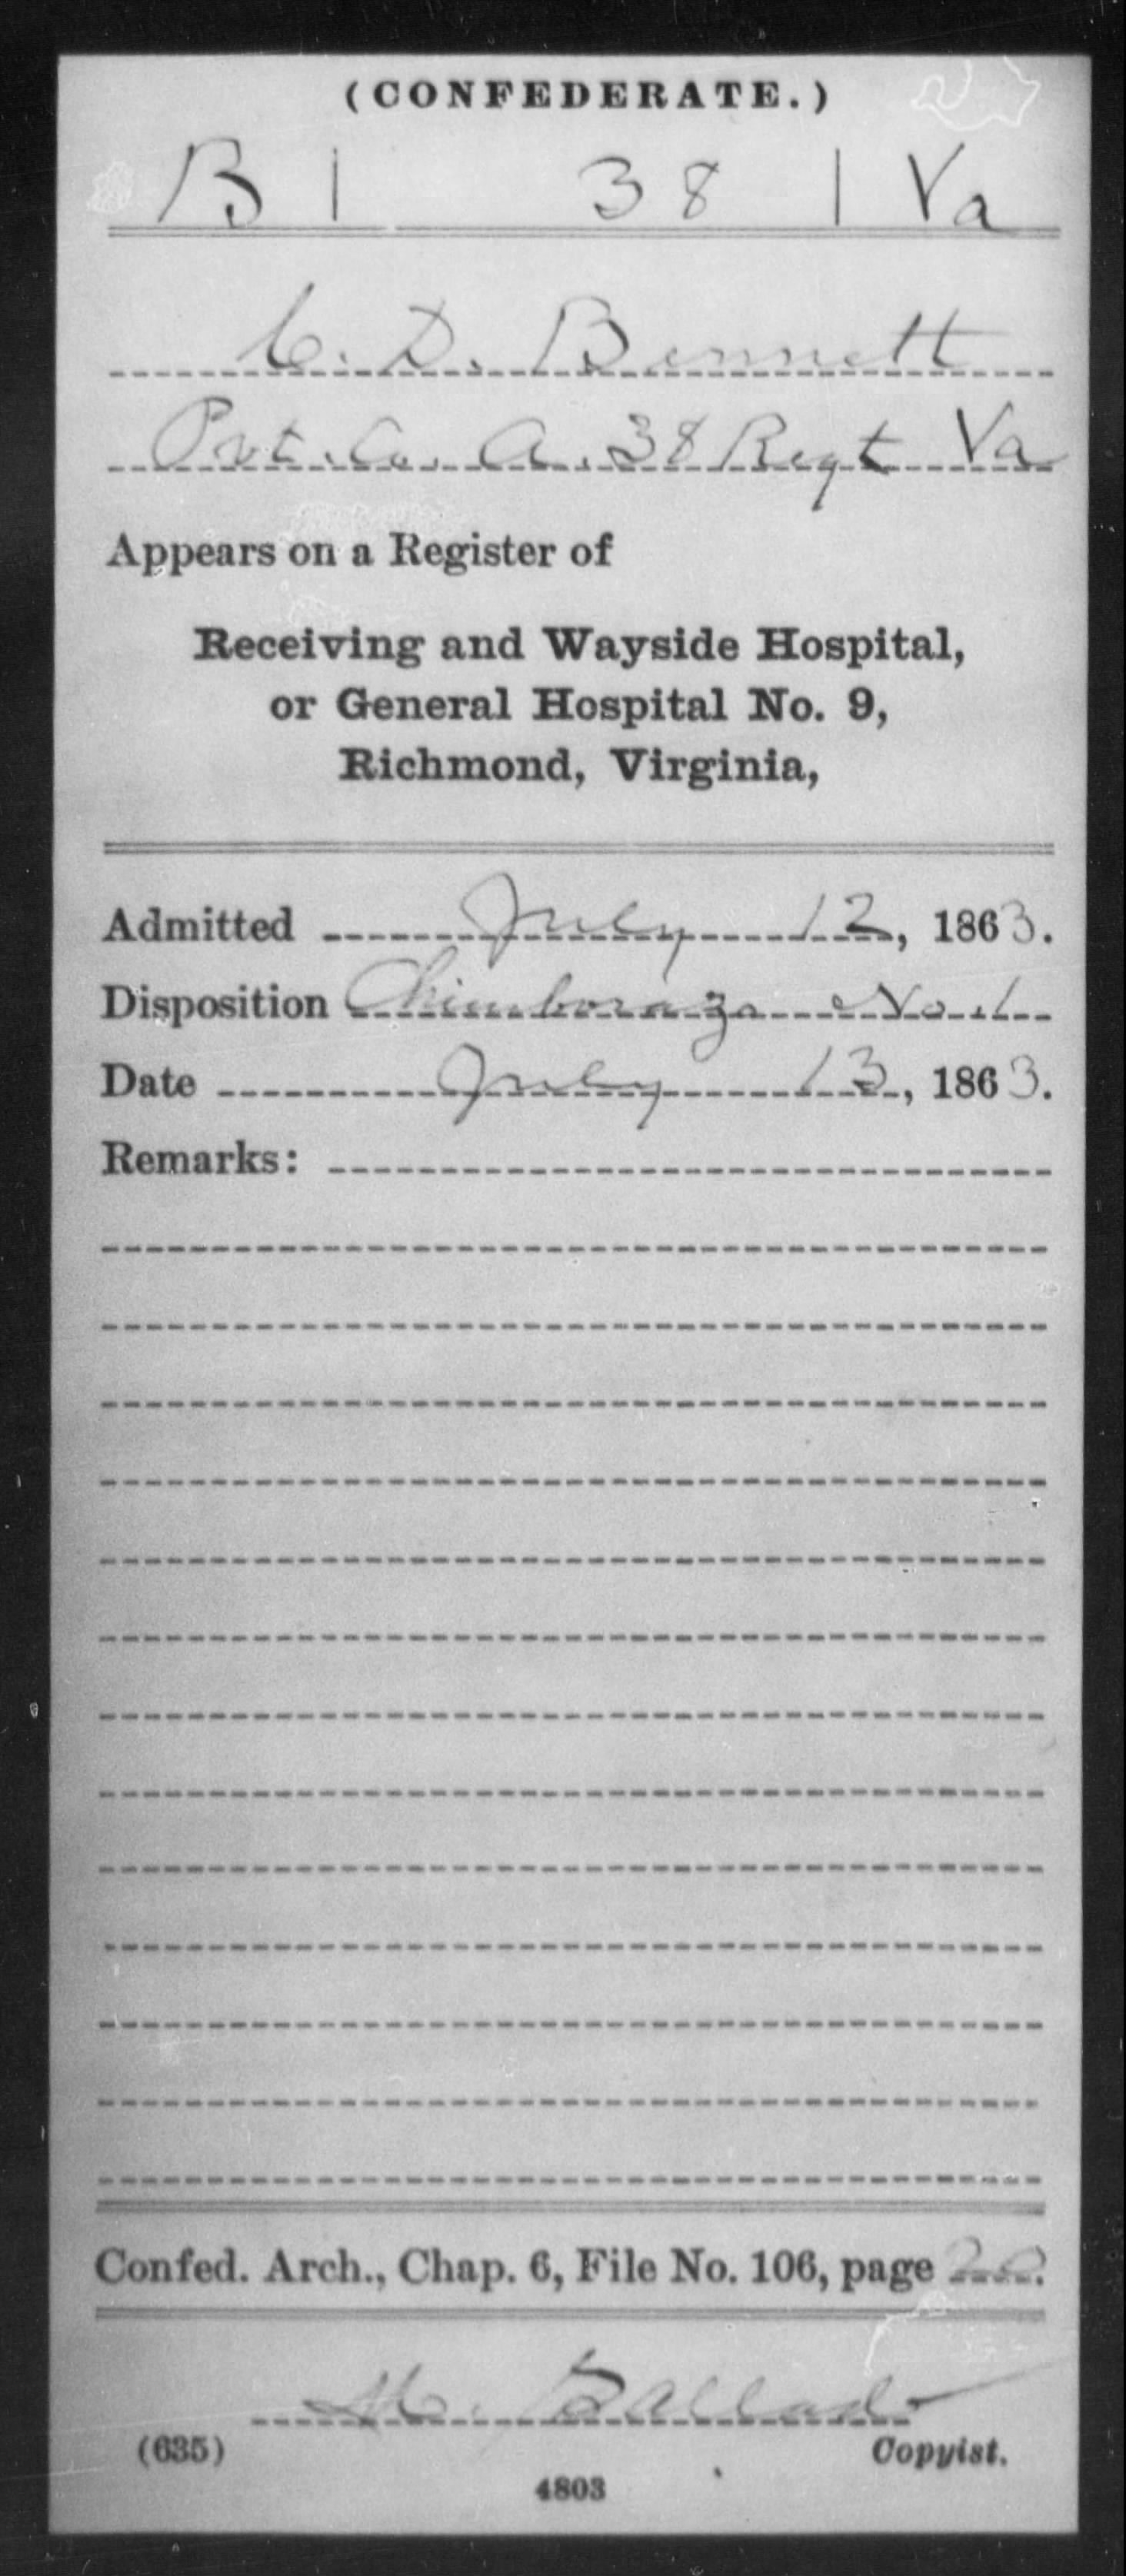 (CONFEDERATE.)
B | 38 | Va
C. D. Bennett
Pvt. Co. A. 38 Regt Va
Appears on a Register of
Receiving and Wayside Hospital,
or General Hospital No. 9,
Richmond, Virginia,
Admitted July 12, 1863.
Disposition Chimborazo No. 1
Date July 13, 1863.
Remarks:
Confed. Arch., Chap. 6, File No. 106, page
M.
(635) Copyist.
4803